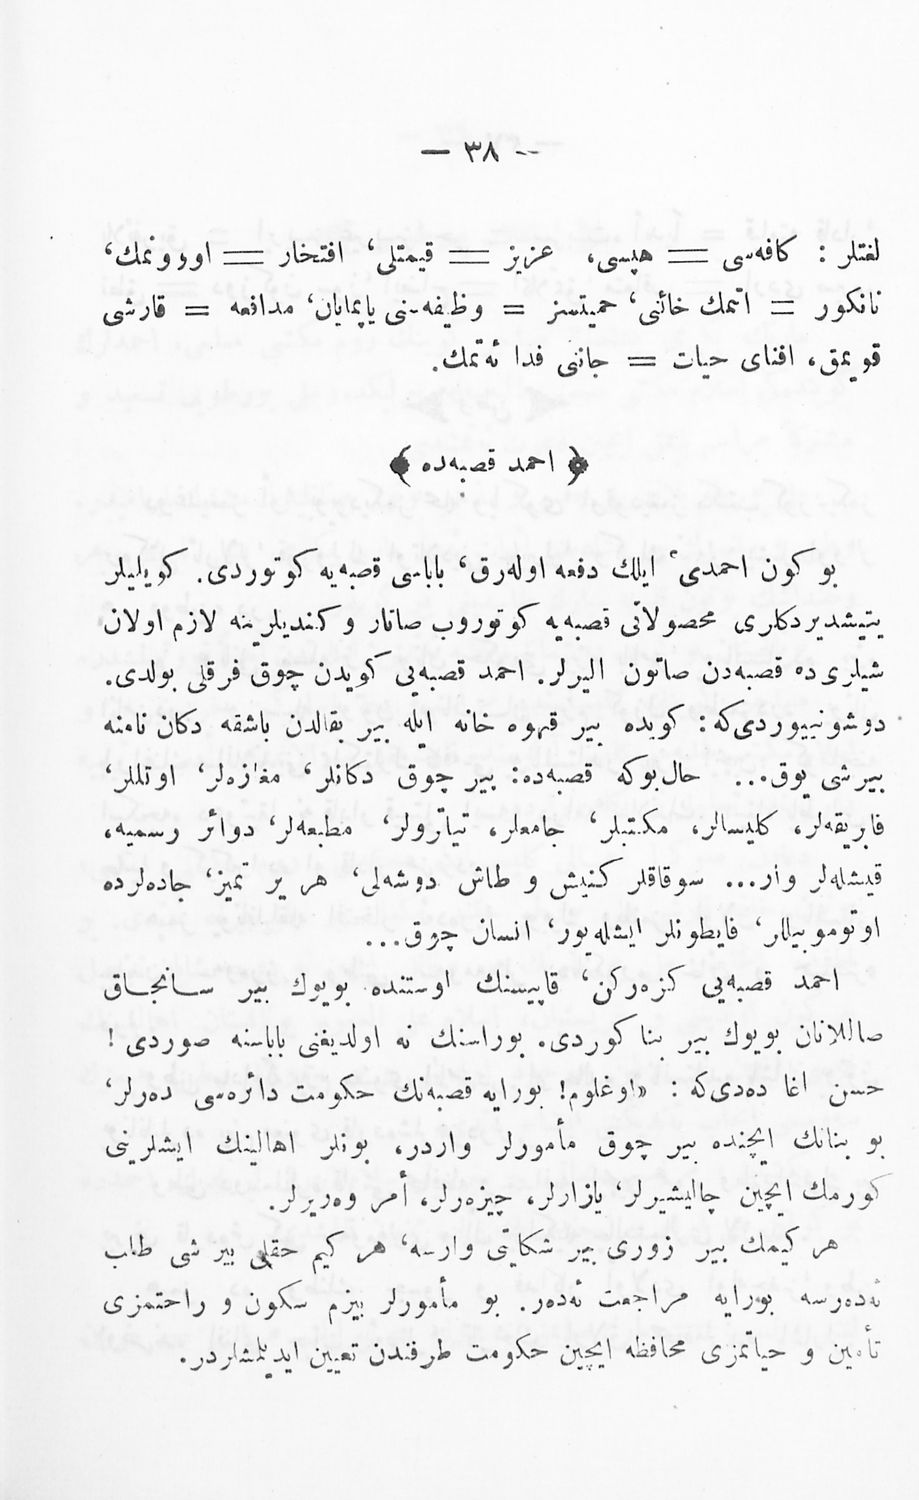 — ٣٨ —
لغتلر : كافه‌سی = هپسی، عزیز = قیمتلی، افتخار = اوۏونمك،
نانكور = اتمك خائنی، حمیتسز = وظیفه‌سنی یاپمایان، مدافعه = قارشی
قویمق، افنای حیات = جاننی فدا ئه‌تمك.
﴿ احمد قصبه‌ده ﴾
بو كون احمدی ایلك دفعه اوله‌رق، باباسی قصبه‌یه كوتوردی. كویلیلر
یتیشدیردكلری محصولاتی قصبه‌یه كوتوروب صاتار و كندیلرینه لازم اولان
شیلری‌ده قصبه‌دن صاتون الیرلر. احمد قصبه‌یی كویدن چوق فرقلی بولدی.
دوشونییوردی‌كه: كویده بیر قهوه خانه ایله بیر بقالدن باشقه دكان نامنه
بیرشی یوق... حال‌بوكه قصبه‌ده: بیر چوق دكانلر، مغازه‌لر، اوتللر،
فابریقه‌لر، كلیسالر، مكتبلر، جامعلر، تیاترولر، مطبعه‌لر، دوائر رسمیه،
قیشله‌لر وار... سوقاقلر كنیش و طاش دوشه‌لی، هر یر تمیز، جاده‌لرده
اوتوموبیللر، فایطونلر ایشله‌یور، انسان چوق...
احمد قصبه‌یی كزه‌ركن، قاپیسنك اوستنده بویوك بیر سانجاق
صاللانان بویوك بیر بنا كوردی. بوراسنك نه اولدیغنی باباسنه صوردی !
حسن اغا ده‌دی‌كه : «اوغلوم! بورایه قصبه‌نك حكومت دائره‌سی ده‌رلر،
بو بنانك ایچنده بیر چوق مأمورلر واردر، بونلر اهالینك ایشلرینی
كورمك ایچین چالیشیرلر، یازارلر، چیزه‌رلر، أمر وه‌ریرلر.
هر كیمك بیر زوری بیر شكایتی وارسه، هر كیم حقلی بیر شی طلب
ئه‌ده‌رسه بورایه مراجعت ئه‌ده‌ر. بو مأمورلر بیزم سكون و راحتمزی
تأمین و حیاتمزی محافظه ایچین حكومت طرفندن تعیین ایدیلمشلردر.